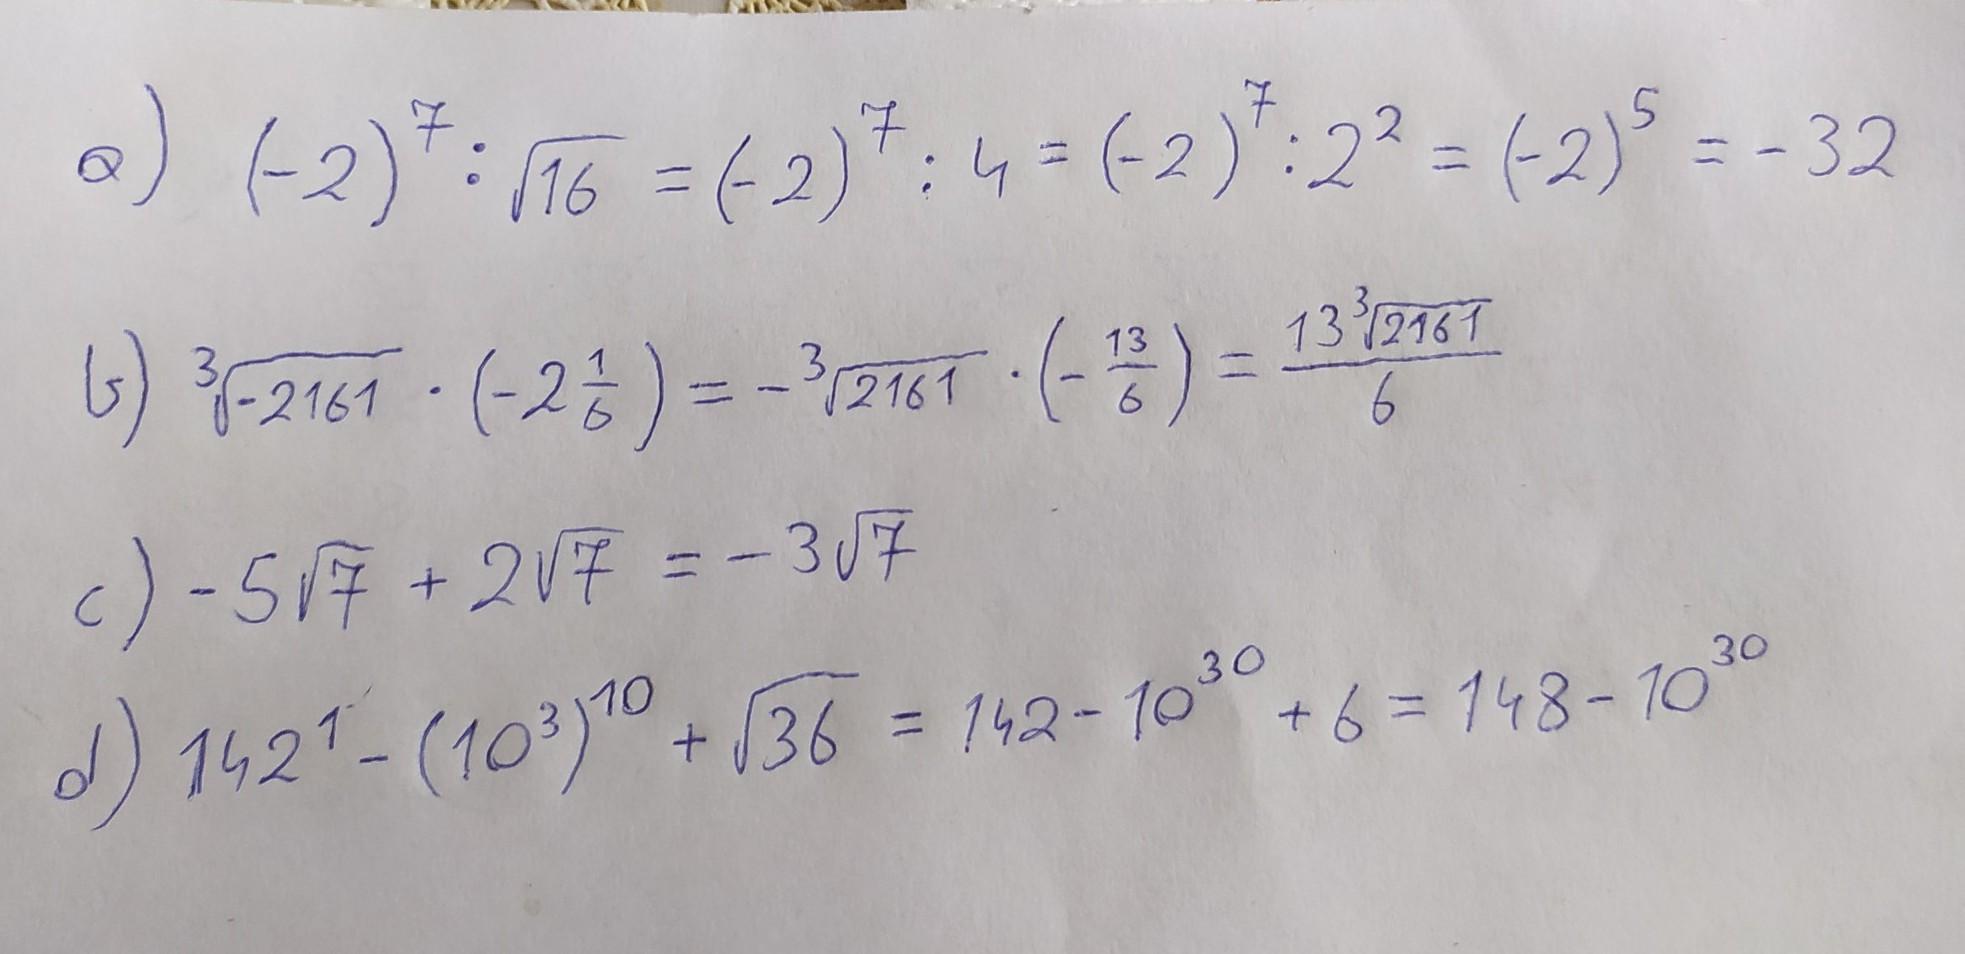 a) (-2)⁷ : √16 = (-2)⁷ : 4 = (-2)⁷ : 2² = (-2)⁵ = -32
b) ³√-2161 · (-2 1/6) = -³√2161 · (-13/6) = 13³√2161/6
c) -5√7 + 2√7 = -3√7
d) 142¹ - (10³)¹⁰ + √36 = 142 - 10³⁰ + 6 = 148 - 10³⁰